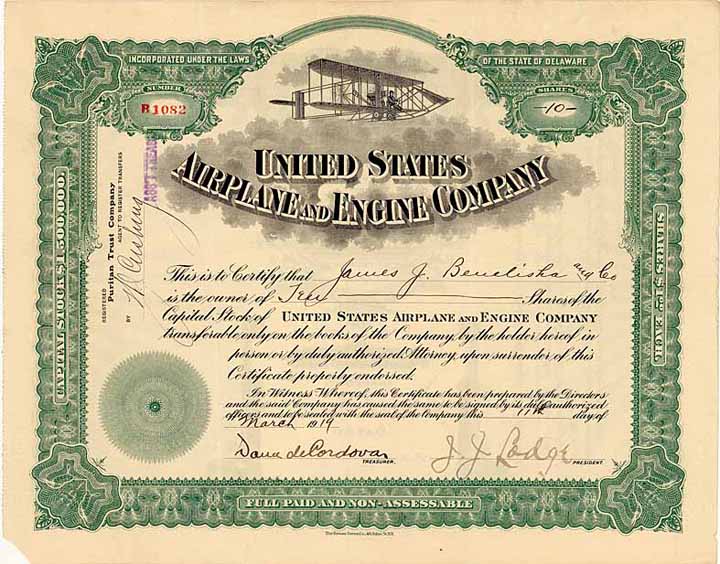 INCORPORATED UNDER THE LAWS OF THE STATE OF DELAWARE
NUMBER
B1082
SHARES
-10-
UNITED STATES
AIRPLANE AND ENGINE COMPANY
CAPITAL STOCK $1,500,000.
SHARES $1.00 EACH
REGISTERED
Puritan Trust Company
AGENT TO REGISTER TRANSFERS
BY
This is to Certify that James J. Benelisha and Co
is the owner of Ten Shares of the
Capital Stock of UNITED STATES AIRPLANE AND ENGINE COMPANY
transferable only on the books of the Company, by the holder hereof in
person or by duly authorized Attorney, upon surrender of this
Certificate properly endorsed.
In Witness Whereof, this Certificate has been prepared by the Directors
and the said Company has caused the same to be signed by its duly authorized
officers and to be sealed with the seal of the Company this 11th day of
March 1919
Dana de Cordova
TREASURER.
J. J. Lodge
PRESIDENT.
FULL PAID AND NON-ASSESSABLE